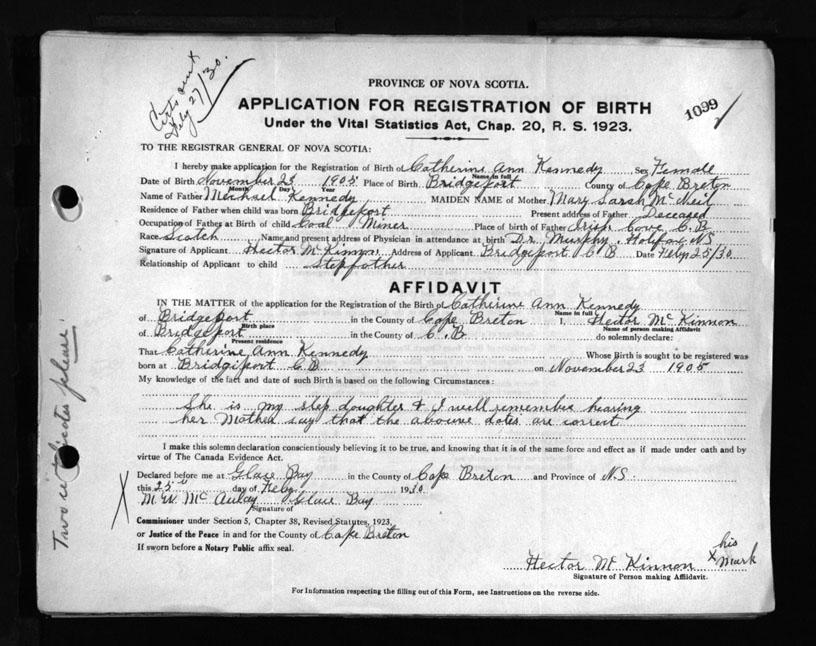 Certs sent
Feby 27/30.
PROVINCE OF NOVA SCOTIA.
APPLICATION FOR REGISTRATION OF BIRTH
1099
Under the Vital Statistics Act, Chap. 20, R. S. 1923.
TO THE REGISTRAR GENERAL OF NOVA SCOTIA:
I hereby make application for the Registration of Birth of Catherine Ann Kennedy Sex Female
Name in full
Date of Birth November 23 1905 Place of Birth Bridgeport County of Cape Breton
Month Day Year
Name of Father Michael Kennedy MAIDEN NAME of Mother Mary Sarah McNeil
Residence of Father when child was born Bridgeport Present address of Father Deceased
Occupation of Father at Birth of child Coal Miner Place of birth of Father Irish Cove C.B
Race Scotch Name and present address of Physician in attendance at birth Dr. Murphy. Halifax NS
Signature of Applicant Hector McKinnon Address of Applicant Bridgeport C B Date Feby 25/30.
Relationship of Applicant to child Stepfather
AFFIDAVIT
IN THE MATTER of the application for the Registration of the Birth of Catherine Ann Kennedy
Name in full
of Bridgeport in the County of Cape Breton I, Hector McKinnon
Birth place Name of person making Affidavit
of Bridgeport in the County of C.B do solemnly declare:
Present residence
That Catherine Ann Kennedy Whose Birth is sought to be registered was
born at Bridgeport C B on November 23 1905
My knowledge of the fact and date of such Birth is based on the following Circumstances:
She is my step daughter & I well remember hearing
her Mother say that the aboove dates are correct
I make this solemn declaration conscientiously believing it to be true, and knowing that it is of the same force and effect as if made under oath and by
virtue of The Canada Evidence Act.
Declared before me at Glace Bay in the County of Cape Breton and Province of N.S.
this 25th day of Feby 1930
M. W. McAulay Glace Bay
Signature of
Commissioner under Section 5, Chapter 38, Revised Statutes, 1923,
or Justice of the Peace in and for the County of Cape Breton
If sworn before a Notary Public affix seal.
his
Hector McKinnon X Mark
Signature of Person making Affidavit.
For Information respecting the filling out of this Form, see Instructions on the reverse side.
Two certificates please!